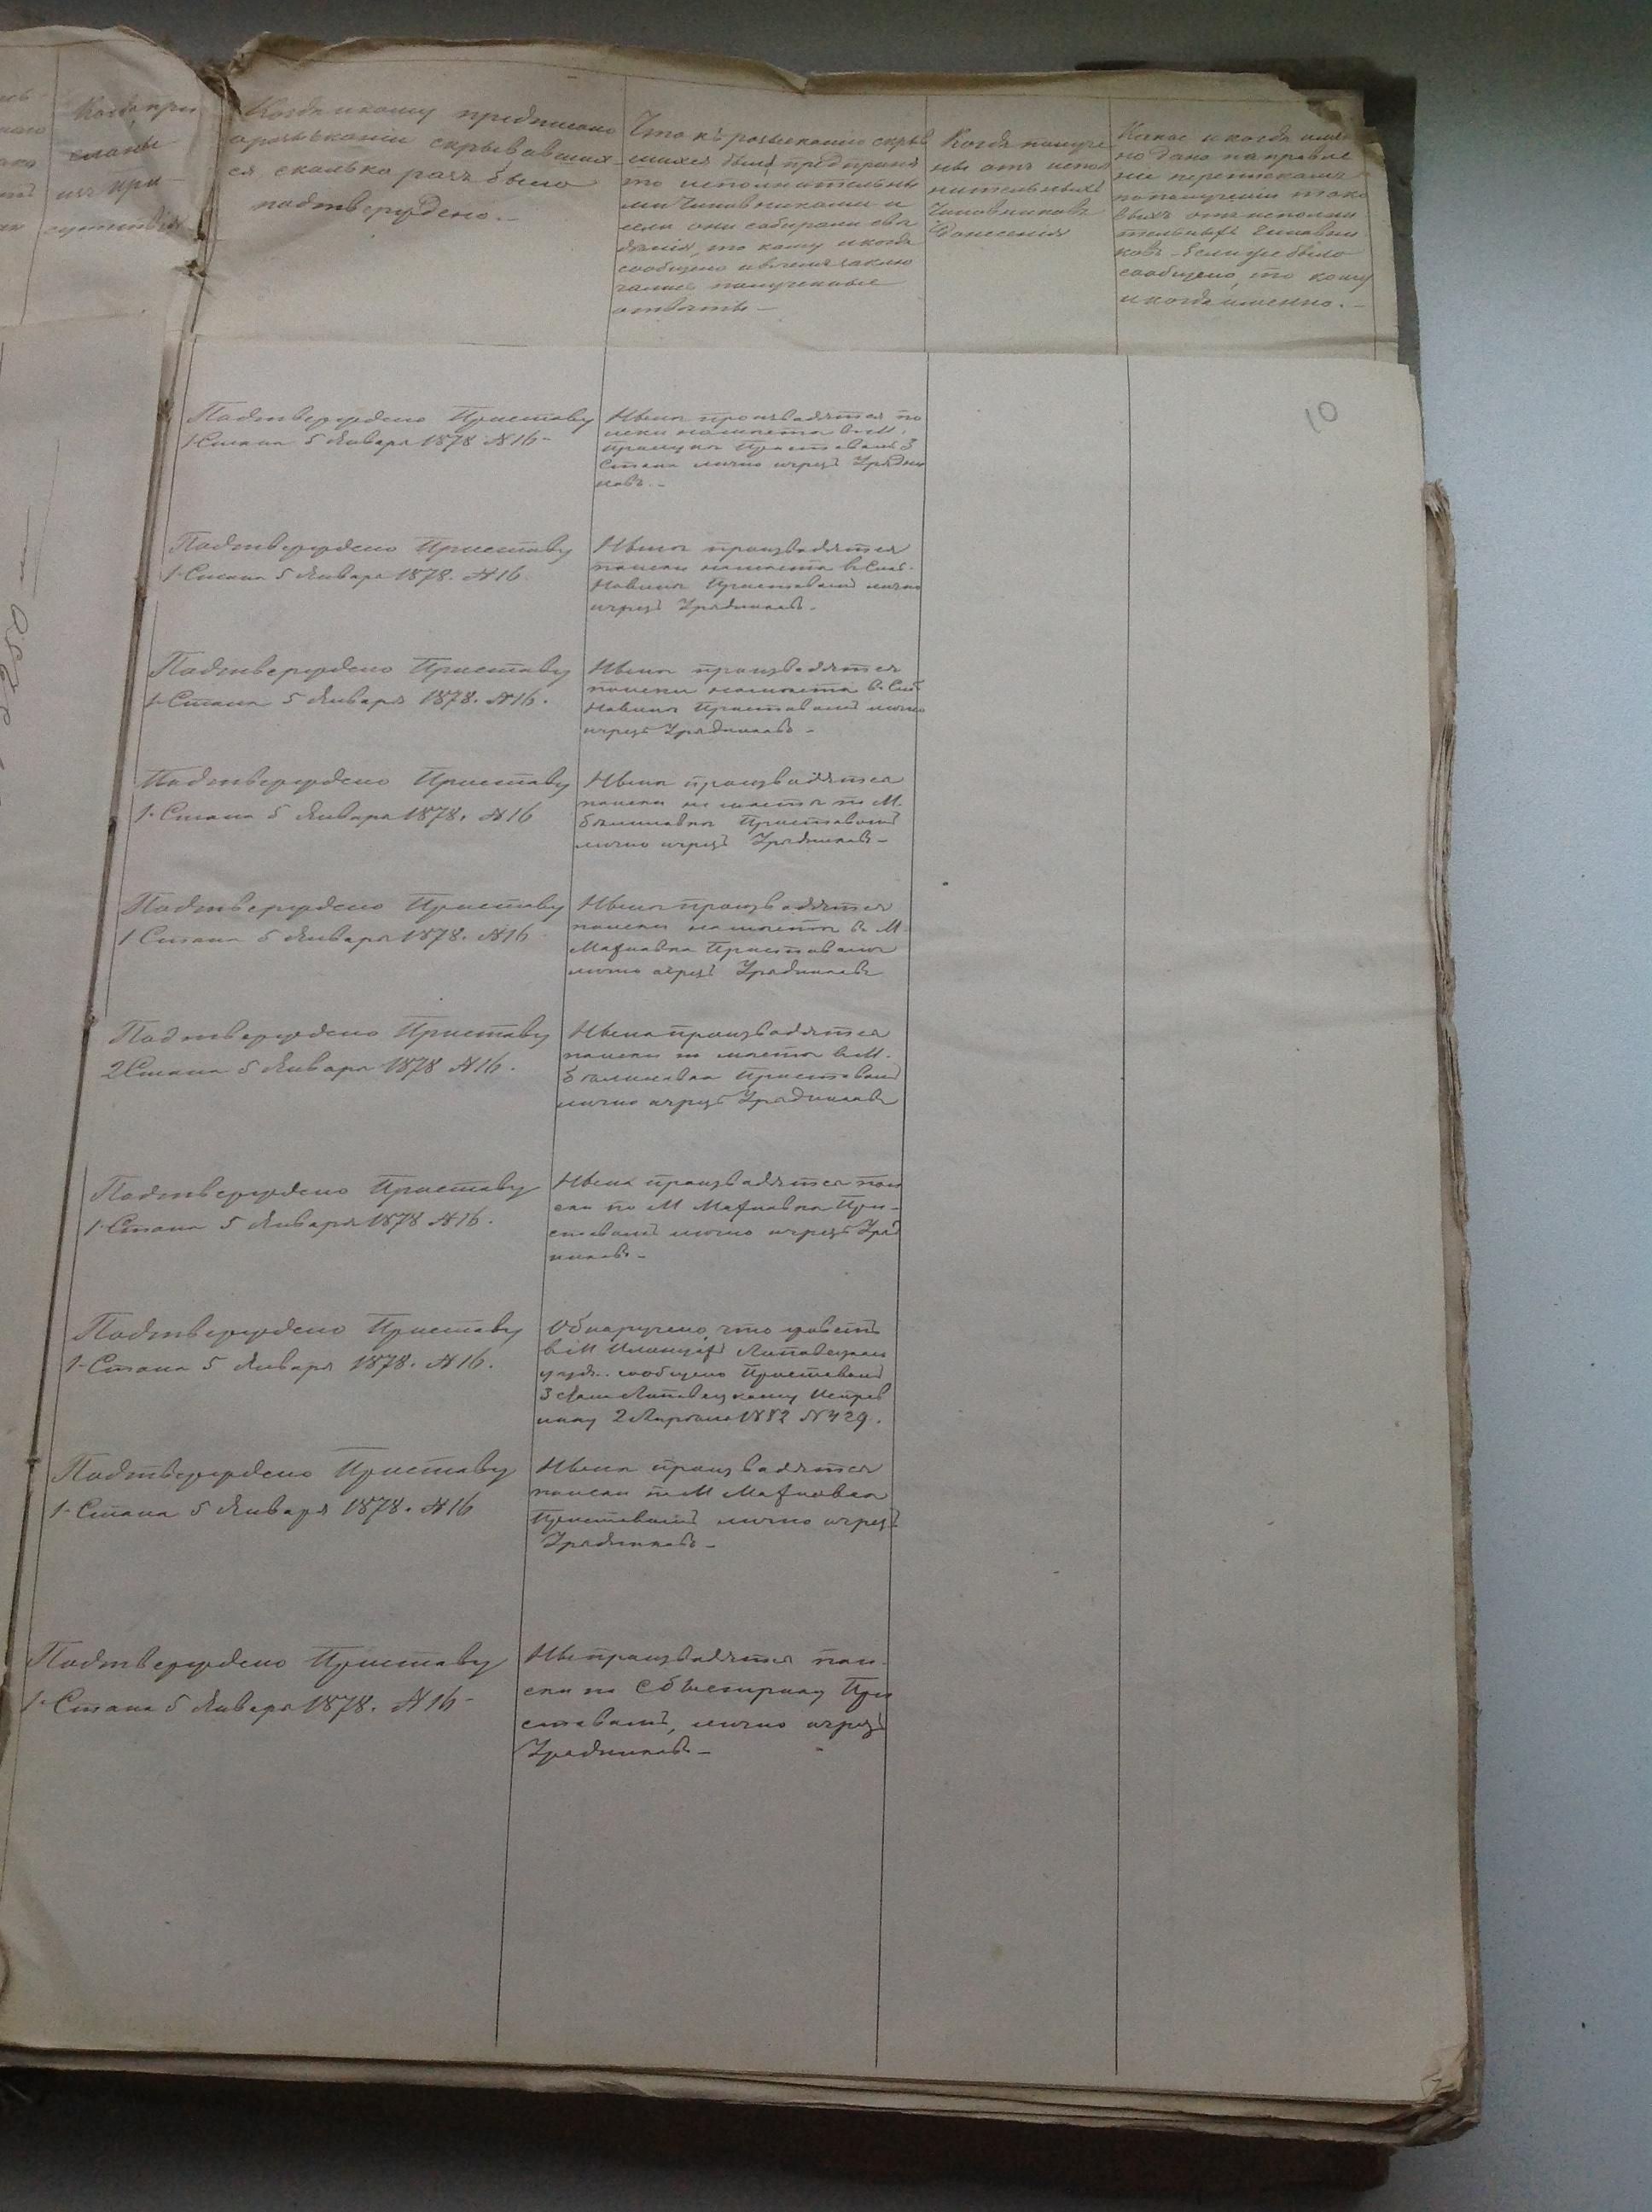 Когда при
сланы
изъ при
сутствія
Когда и кому предписано
о розысканіи скрывавших
ся сколько разъ было
подтверждено. —
Что къ розысканію скрыв
шихся было предприня
то исполнительны
ми Чиновниками и
если они собирали свѣ
дѣнія, то кому и когда
сообщено и въ чемъ заклю
чались полученные
отвѣты —
Когда получе
ны отъ испол
нительныхъ
Чиновниковъ
Донесенія
Какое и когда имен
но дано направле
ніе перепискамъ
по полученіи тако
выхъ отъ исполни
тельныхъ Чиновни
ковъ. Если же было
сообщено, то кому
и когда именно. —
10
Подтверждено Приставу
1 Стана 5 Января 1878 №16 —
Нынѣ производятся по
иски на мѣстѣ в. М.
Приставомъ 3
Стана лично и чрезъ Урядни
ковъ. —
Подтверждено Приставу
1 Стана 5 Января 1878. №16
Нынѣ производятся
поиски на мѣстѣ
Приставомъ лично
и чрезъ Урядниковъ. —
Подтверждено Приставу
1 Стана 5 Января 1878. №16.
Нынѣ производятся
поиски на мѣстѣ
Приставомъ лично
и чрезъ Урядниковъ —
Подтверждено Приставу
1 Стана 5 Января 1878. №16
Нынѣ производятся
поиски на мѣстѣ М.
Приставомъ
лично и чрезъ Урядниковъ —
Подтверждено Приставу
1 Стана 5 Января 1878. №16
Нынѣ производятся
поиски на мѣстѣ в. М.
Приставомъ
лично и чрезъ Урядниковъ
Подтверждено Приставу
2 Стана 5 Января 1878 №16.
Нынѣ производятся
поиски на мѣстѣ в М.
Приставомъ
лично и чрезъ Урядниковъ
Подтверждено Приставу
1 Стана 5 Января 1878 №16.
Нынѣ производятся пои
ски по М При
ставомъ лично и чрезъ Уряд
никовъ. —
Подтверждено Приставу
1 Стана 5 Января 1878. №16.
Обнаружено, что живетъ
в М Липовецкаго
уѣзд. сообщено Приставомъ
3 Стана Липовецкому Исправ
нику 2 Апрѣля 1882 №429.
Подтверждено Приставу
1 Стана 5 Января 1878. №16
Нынѣ производятся
поиски по М
Приставомъ лично и чрезъ
Урядниковъ —
Подтверждено Приставу
1 Стана 5 Января 1878. №16 —
Нынѣ производятся пои
ски по При
ставомъ, лично и чрезъ
Урядниковъ —